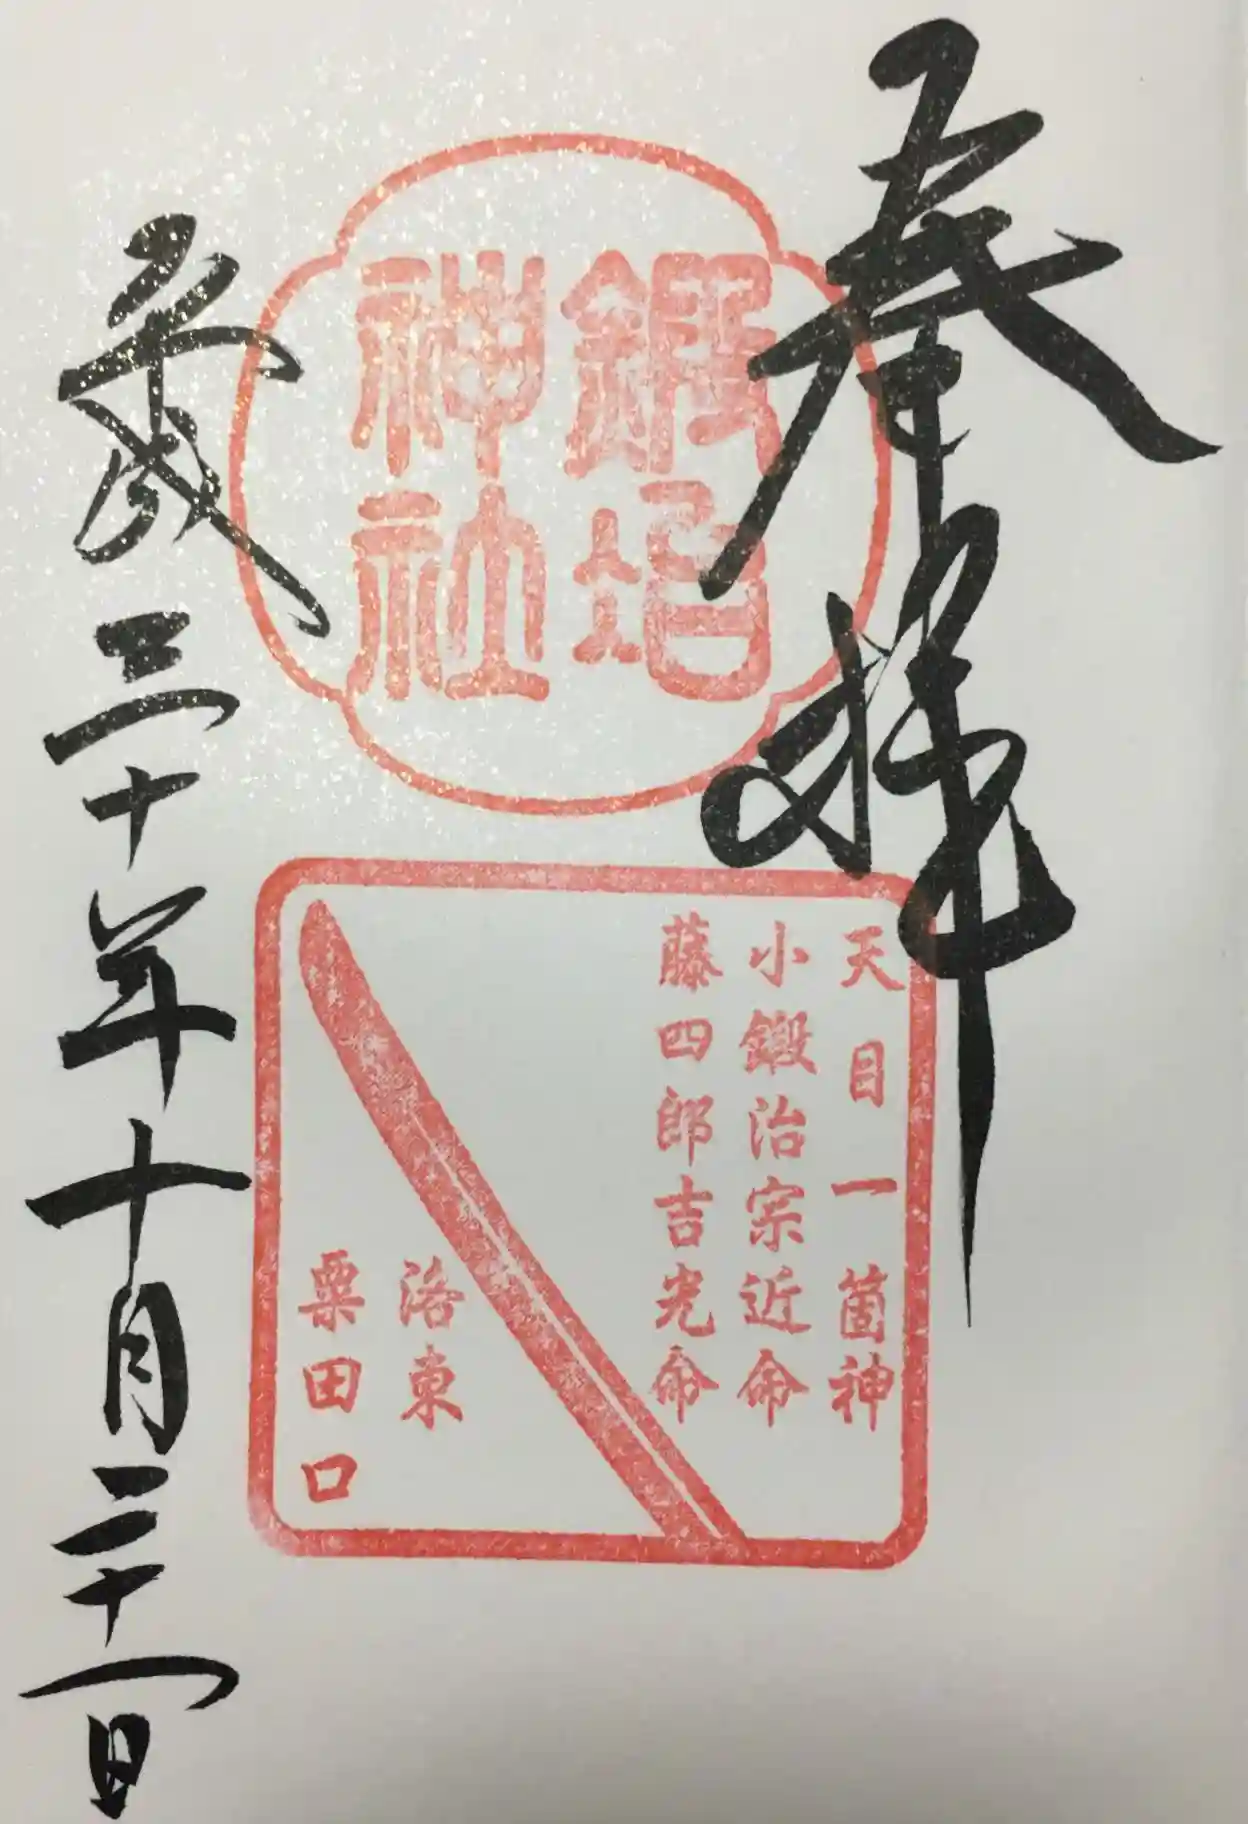 奉拝
鍛冶
神社
天目一箇神
小鍛治宗近命
藤四郎吉光命
洛東
粟田口
平成三十年十月二十一日